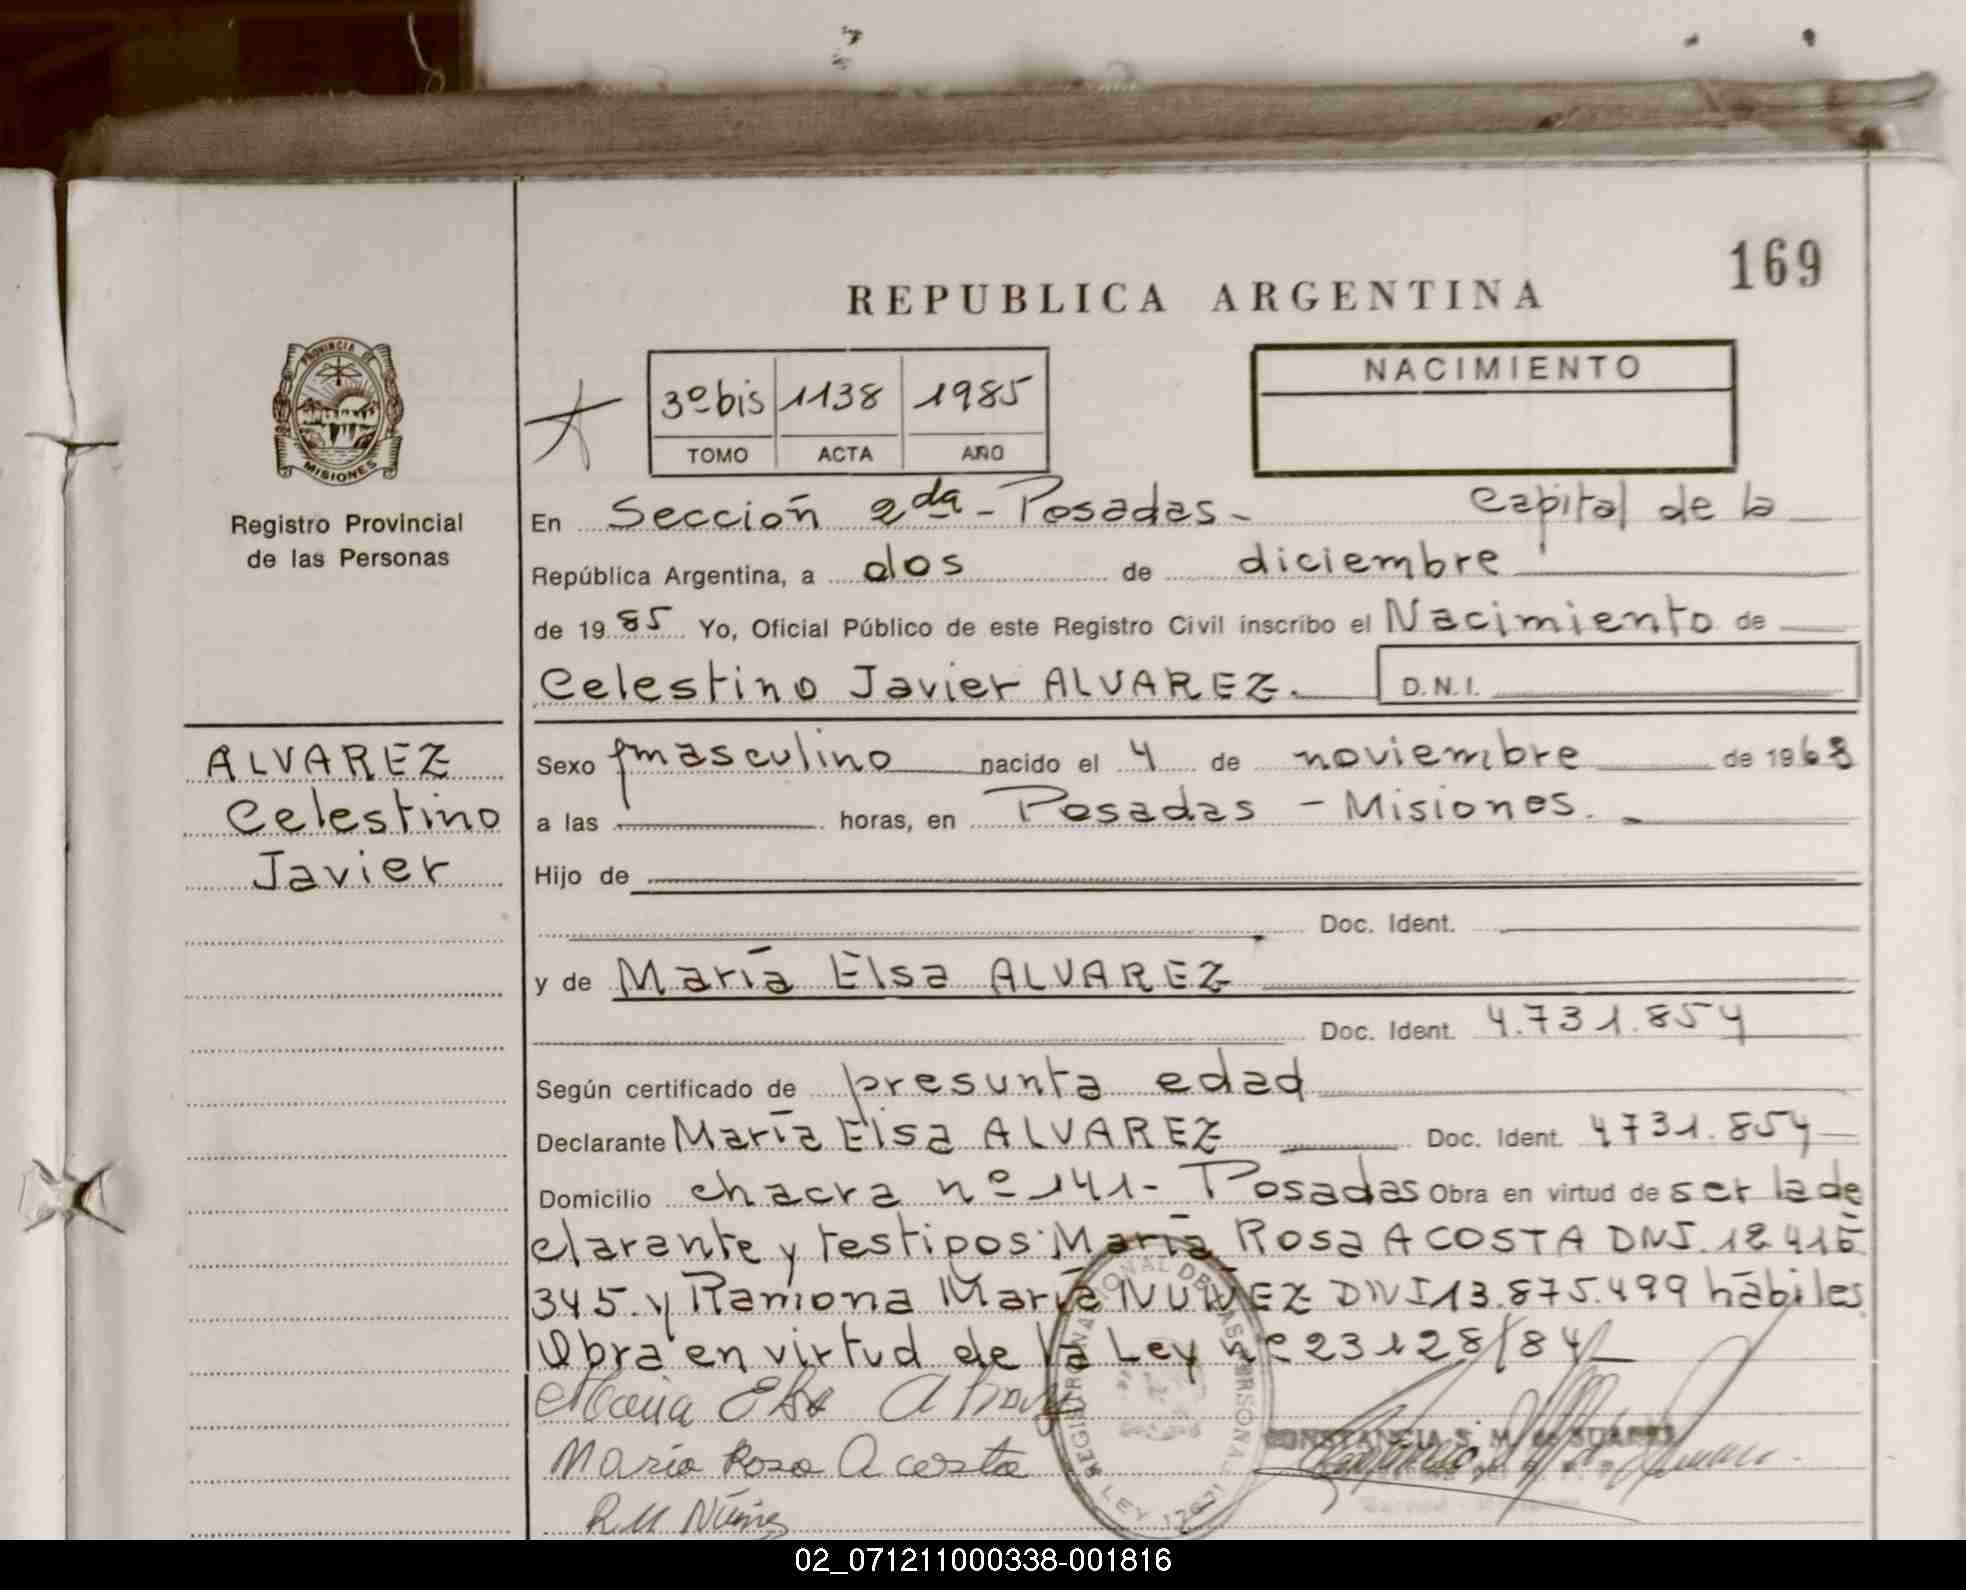 169
REPUBLICA ARGENTINA
PROVINCIA DE
MISIONES
Registro Provincial
de las Personas
3º bis 1138 1985
TOMO ACTA AÑO
NACIMIENTO
En Sección 2da - Posadas - Capital de la
República Argentina, a dos de diciembre
de 1985 Yo, Oficial Público de este Registro Civil inscribo el Nacimiento de
Celestino Javier ALVAREZ. D.N.I.
ALVAREZ
Celestino
Javier
Sexo masculino nacido el 4 de noviembre de 1968
a las horas, en Posadas - Misiones.
Hijo de
Doc. Ident.
y de María Elsa ALVAREZ
Doc. Ident. 4.731.854
Según certificado de presunta edad
Declarante María Elsa ALVAREZ Doc. Ident. 4731.854
Domicilio chacra nº 141 - Posadas Obra en virtud de ser la de
clarante y testigos: María Rosa ACOSTA DNI.
345. y Ramona María NUÑEZ DNI 13.875.499 hábiles.
Obra en virtud de la Ley nº 23128/84
Maria Elsa
María Rosa Acosta
R.M Núñez
CONSTANCIA S. M. de SUAREZ
REGISTRO NACIONAL DE LAS PERSONAS
LEY 17671
02_071211000338-001816